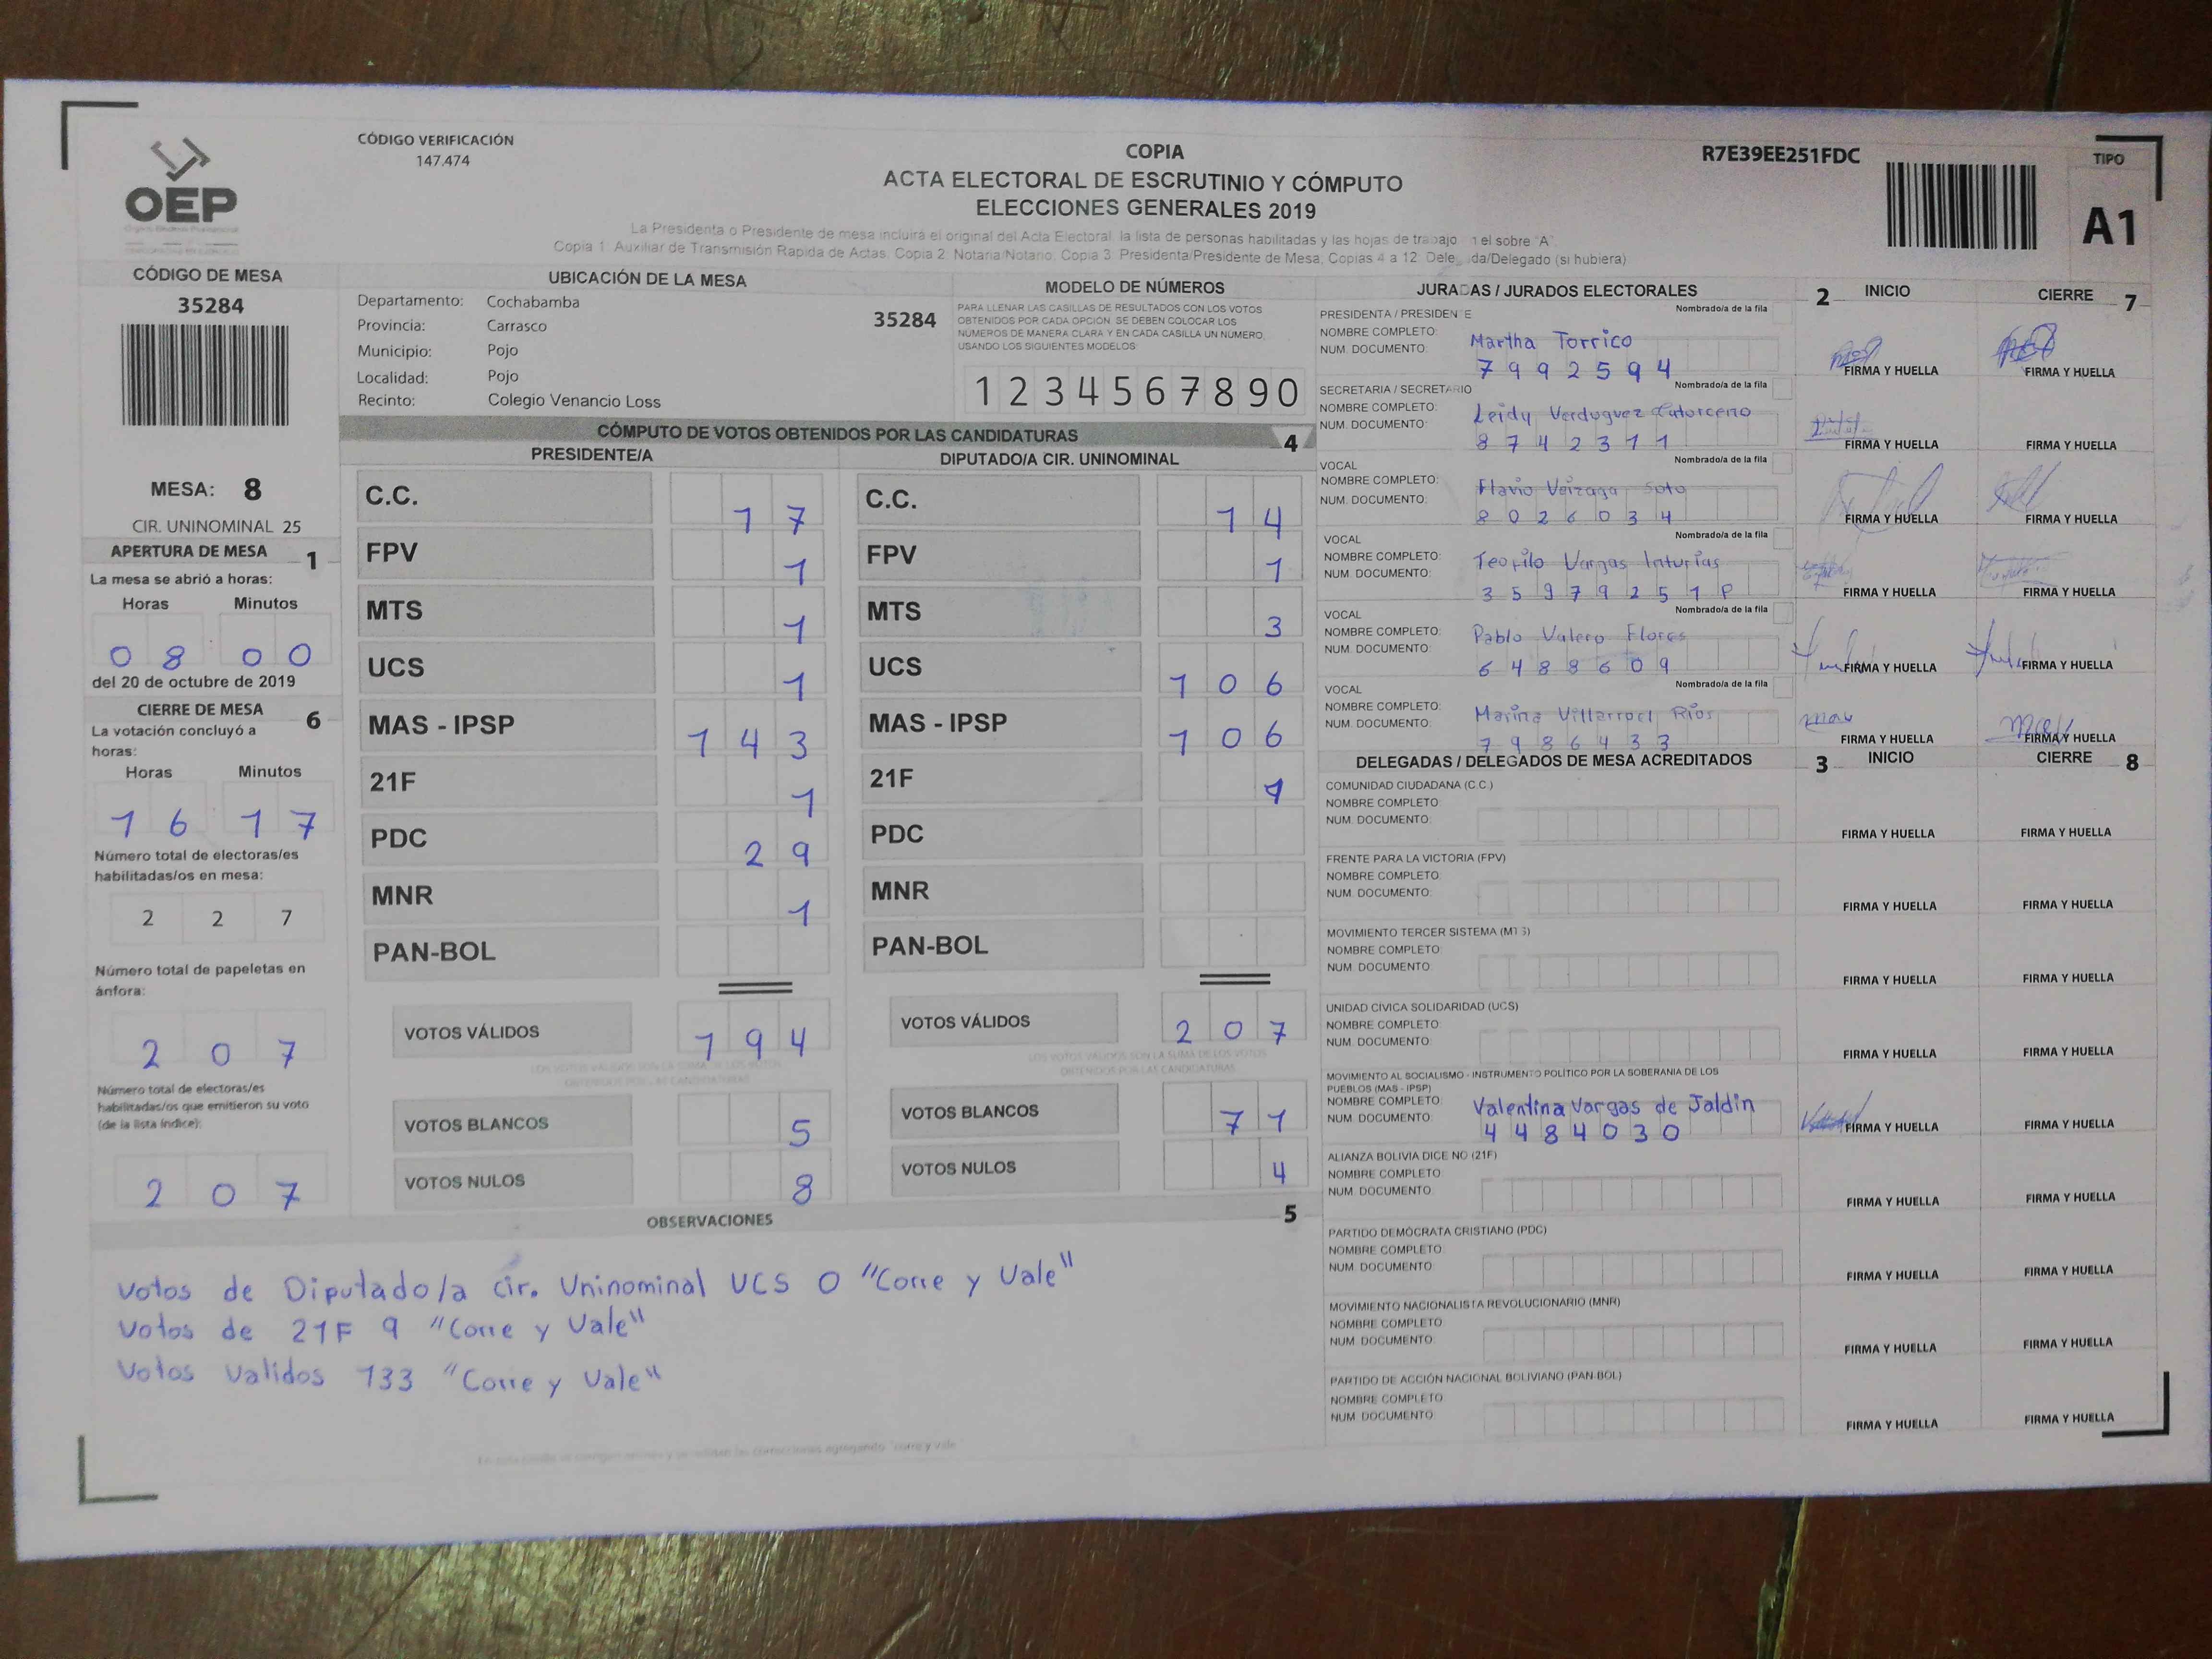 OEP
CÓDIGO VERIFICACIÓN
147.474
COPIA
ACTA ELECTORAL DE ESCRUTINIO Y CÓMPUTO
ELECCIONES GENERALES 2019
La Presidenta o Presidente de mesa incluirá el original del Acta Electoral, la lista de personas habilitadas y las hojas de trabajo el sobre "A".
Copia 1: Auxiliar de Transmisión Rapida de Actas, Copia 2: Notaria/Notario, Copia 3: Presidenta/Presidente de Mesa, Copias 4 a 12: /Delegado (si hubiera)
R7E39EE251FDC
TIPO
A1
CÓDIGO DE MESA
35284
MESA: 8
CIR. UNINOMINAL 25
APERTURA DE MESA 1
La mesa se abrió a horas:
Horas Minutos
0 8 0 0
del 20 de octubre de 2019
CIERRE DE MESA 6
La votación concluyó a
horas:
Horas Minutos
1 6 1 7
Número total de electoras/es
habilitadas/os en mesa:
2 2 7
Número total de papeletas en
ánfora:
2 0 7
Número total de electoras/es
habilitadas/os que emitieron su voto
(de la lista índice):
2 0 7
UBICACIÓN DE LA MESA
Departamento: Cochabamba
Provincia: Carrasco
35284
Municipio: Pojo
Localidad: Pojo
Recinto: Colegio Venancio Loss
MODELO DE NÚMEROS
PARA LLENAR LAS CASILLAS DE RESULTADOS CON LOS VOTOS
OBTENIDOS POR CADA OPCIÓN, SE DEBEN COLOCAR LOS
NÚMEROS DE MANERA CLARA Y EN CADA CASILLA UN NÚMERO,
USANDO LOS SIGUIENTES MODELOS:
1 2 3 4 5 6 7 8 9 0
CÓMPUTO DE VOTOS OBTENIDOS POR LAS CANDIDATURAS 4
PRESIDENTE/A
C.C. 1 7
FPV 1
MTS 1
UCS 1
MAS - IPSP 1 4 3
21F 1
PDC 2 9
MNR 1
PAN-BOL
VOTOS VÁLIDOS 1 9 4
VOTOS BLANCOS 5
VOTOS NULOS 8
DIPUTADO/A CIR. UNINOMINAL
C.C. 1 4
FPV 1
MTS 3
UCS 1 0 6
MAS - IPSP 1 0 6
21F
PDC
MNR
PAN-BOL
VOTOS VÁLIDOS 2 0 7
LOS VOTOS VÁLIDOS SON LA SUMA DE LOS VOTOS
OBTENIDOS POR LAS CANDIDATURAS
VOTOS BLANCOS 7 1
VOTOS NULOS 4
OBSERVACIONES 5
Votos de Diputado/a cir. Uninominal UCS 0 "Corre y Vale"
Votos de 21F 9 "Corre y Vale"
Votos Validos 133 "Corre y Vale"
JURADAS / JURADOS ELECTORALES
2 INICIO
CIERRE 7
PRESIDENTA / PRESIDENTE Nombrado/a de la fila
NOMBRE COMPLETO: Martha Torrico
NUM. DOCUMENTO: 7 9 9 2 5 9 4
FIRMA Y HUELLA FIRMA Y HUELLA
SECRETARIA / SECRETARIO Nombrado/a de la fila
NOMBRE COMPLETO: Leidy Verduguez Catorceno
NUM. DOCUMENTO: 8 7 4 2 3 1 1
FIRMA Y HUELLA FIRMA Y HUELLA
VOCAL Nombrado/a de la fila
NOMBRE COMPLETO: Flavio Veizaga Soto
NUM. DOCUMENTO: 8 0 2 6 0 3 4
FIRMA Y HUELLA FIRMA Y HUELLA
VOCAL Nombrado/a de la fila
NOMBRE COMPLETO: Teofilo Vargas Inturias
NUM. DOCUMENTO: 3 5 9 7 9 2 5 1 P
FIRMA Y HUELLA FIRMA Y HUELLA
VOCAL Nombrado/a de la fila
NOMBRE COMPLETO: Pablo Valero Flores
NUM. DOCUMENTO: 6 4 8 8 6 0 9
FIRMA Y HUELLA FIRMA Y HUELLA
VOCAL Nombrado/a de la fila
NOMBRE COMPLETO: Marina Villarroel Rios
NUM. DOCUMENTO: 7 9 8 6 4 3 3
FIRMA Y HUELLA FIRMA Y HUELLA
DELEGADAS / DELEGADOS DE MESA ACREDITADOS
3 INICIO
CIERRE 8
COMUNIDAD CIUDADANA (C.C.)
NOMBRE COMPLETO:
NUM. DOCUMENTO:
FIRMA Y HUELLA FIRMA Y HUELLA
FRENTE PARA LA VICTORIA (FPV)
NOMBRE COMPLETO:
NUM. DOCUMENTO:
FIRMA Y HUELLA FIRMA Y HUELLA
MOVIMIENTO TERCER SISTEMA (MTS)
NOMBRE COMPLETO:
NUM. DOCUMENTO:
FIRMA Y HUELLA FIRMA Y HUELLA
UNIDAD CÍVICA SOLIDARIDAD (UCS)
NOMBRE COMPLETO:
NUM. DOCUMENTO:
FIRMA Y HUELLA FIRMA Y HUELLA
MOVIMIENTO AL SOCIALISMO - INSTRUMENTO POLÍTICO POR LA SOBERANIA DE LOS
PUEBLOS (MAS - IPSP)
NOMBRE COMPLETO: Valentina Vargas de Jaldin
NUM. DOCUMENTO: 4 4 8 4 0 3 0
FIRMA Y HUELLA FIRMA Y HUELLA
ALIANZA BOLIVIA DICE NO (21F)
NOMBRE COMPLETO:
NUM. DOCUMENTO:
FIRMA Y HUELLA FIRMA Y HUELLA
PARTIDO DEMÓCRATA CRISTIANO (PDC)
NOMBRE COMPLETO:
NUM. DOCUMENTO:
FIRMA Y HUELLA FIRMA Y HUELLA
MOVIMIENTO NACIONALISTA REVOLUCIONARIO (MNR)
NOMBRE COMPLETO:
NUM. DOCUMENTO:
FIRMA Y HUELLA FIRMA Y HUELLA
PARTIDO DE ACCIÓN NACIONAL BOLIVIANO (PAN-BOL)
NOMBRE COMPLETO:
NUM. DOCUMENTO:
FIRMA Y HUELLA FIRMA Y HUELLA